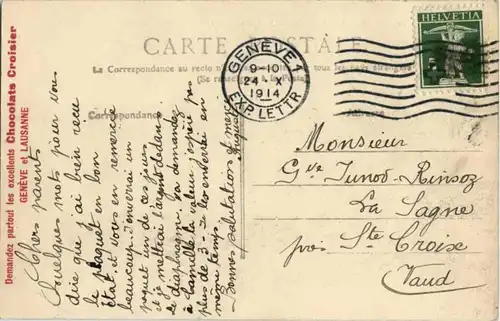 Demandez partout les excellents Chocolats Croisier
GENÈVE et LAUSANNE
CARTE POSTALE
La Correspondance au recto n'est pas
tous les pays étrangers
(Se renseigner à la Poste)
Correspondance
Adresse
HELVETIA
GENÈVE 1
9-10
24·X
1914
EXP. LETTR
Chers parents
Quelques mots pour vous
dire que j'ai bien reçu
le paquet en bon
état et vous en remercie
beaucoup. J'enverrai un
paquet un de ces jours
et je mettrai l'argent dedans
Le diaphragme. Va demander
à Camille la valeur, j'espère pas
plus de 3.- Je les enverrai en
même temps.
Bonnes salutations et merci
Monsieur
Gve Junod-Rinsoz
La Sagne
près Ste Croix
Vaud